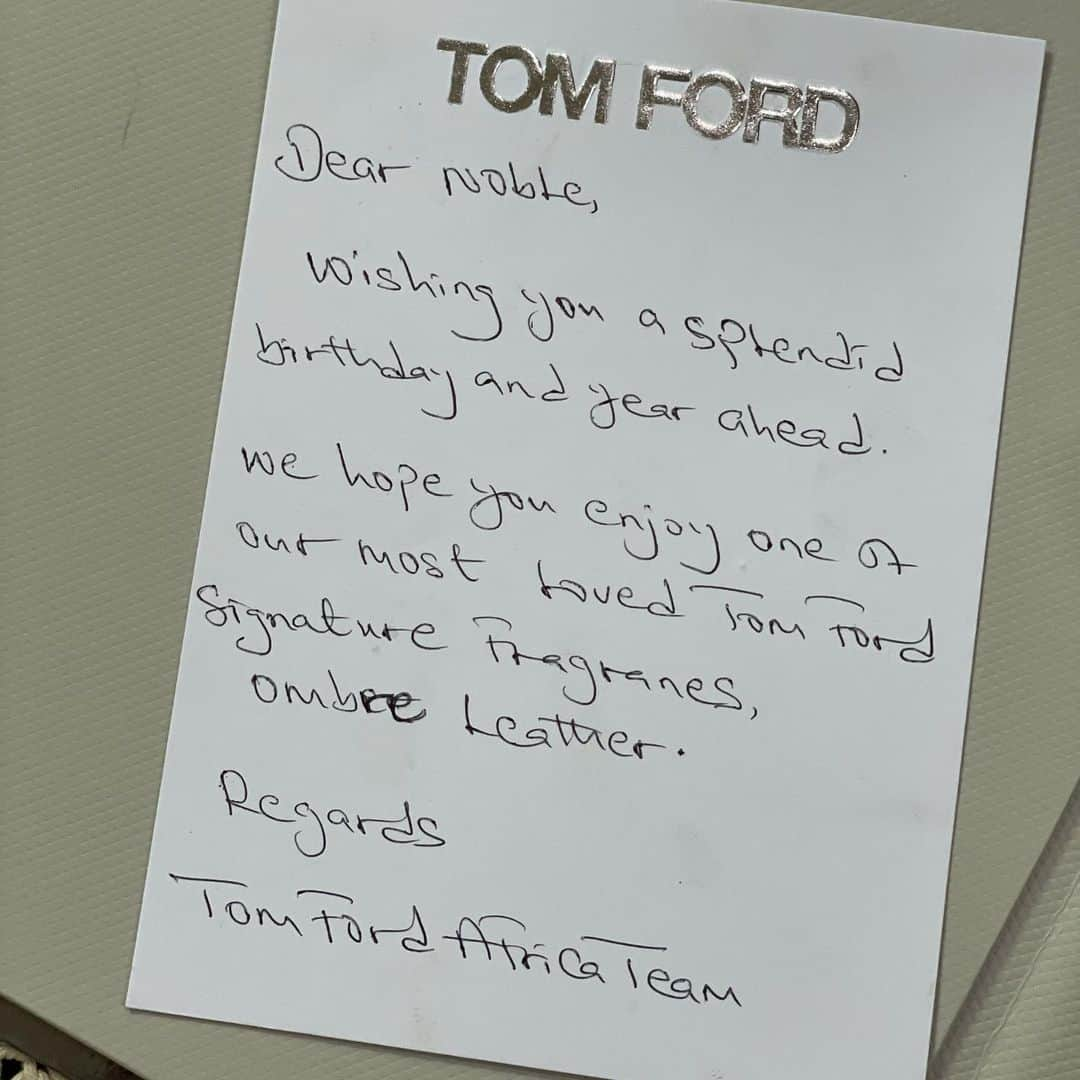 TOM FORD
Dear Noble,
Wishing you a splendid
birthday and year ahead.
We hope you enjoy one of
our most loved Tom Ford
Signature Fragranes,
Ombre Leather.
Regards
Tom Ford Africa Team